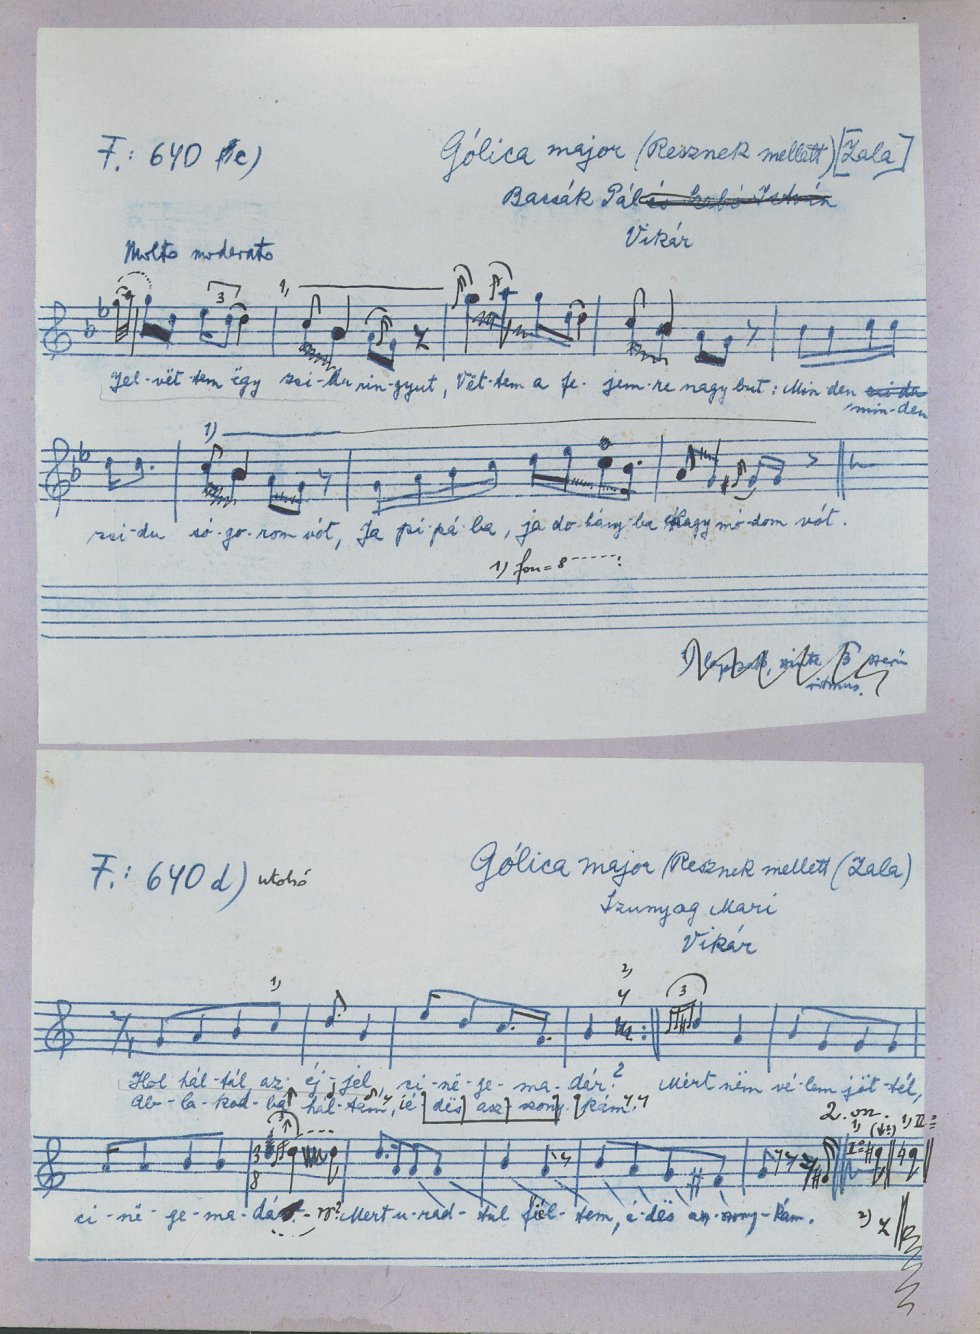 F.: 640 c)
Gólica major (Resznek mellett) [Zala]
Bacsák Pál és Szabó István
Vikár
Molto moderato
3
1)
Fel-vët-tem ëgy zsi-du rin-gyut, Vët-tem a fe-jem-re nagy but: Min-den zsi-du
min-den
1)
zsi-du só-go-rom vót, Ja pi-pá-ba, ja do-hány-ba nagy mó-dom vót.
1) fon = 8
ritmus.
F.: 640 d) utolsó
Gólica major (Resznek mellett (Zala)
Szunyog Mari
Vikár
1)
2)
3
Hol hál-tál az éj-jel, ci-në-ge-ma-dár? Mért nëm vé-lem jöt-tél,
Ab-la-kod-ba hál-tam, é-dës asz-szony-kám!
2. on.
1)
1) II =
3
8
ci-në-ge-ma-dár? Mert u-rad-tul fél-tem, é-dës asz-szony-kám.
2)